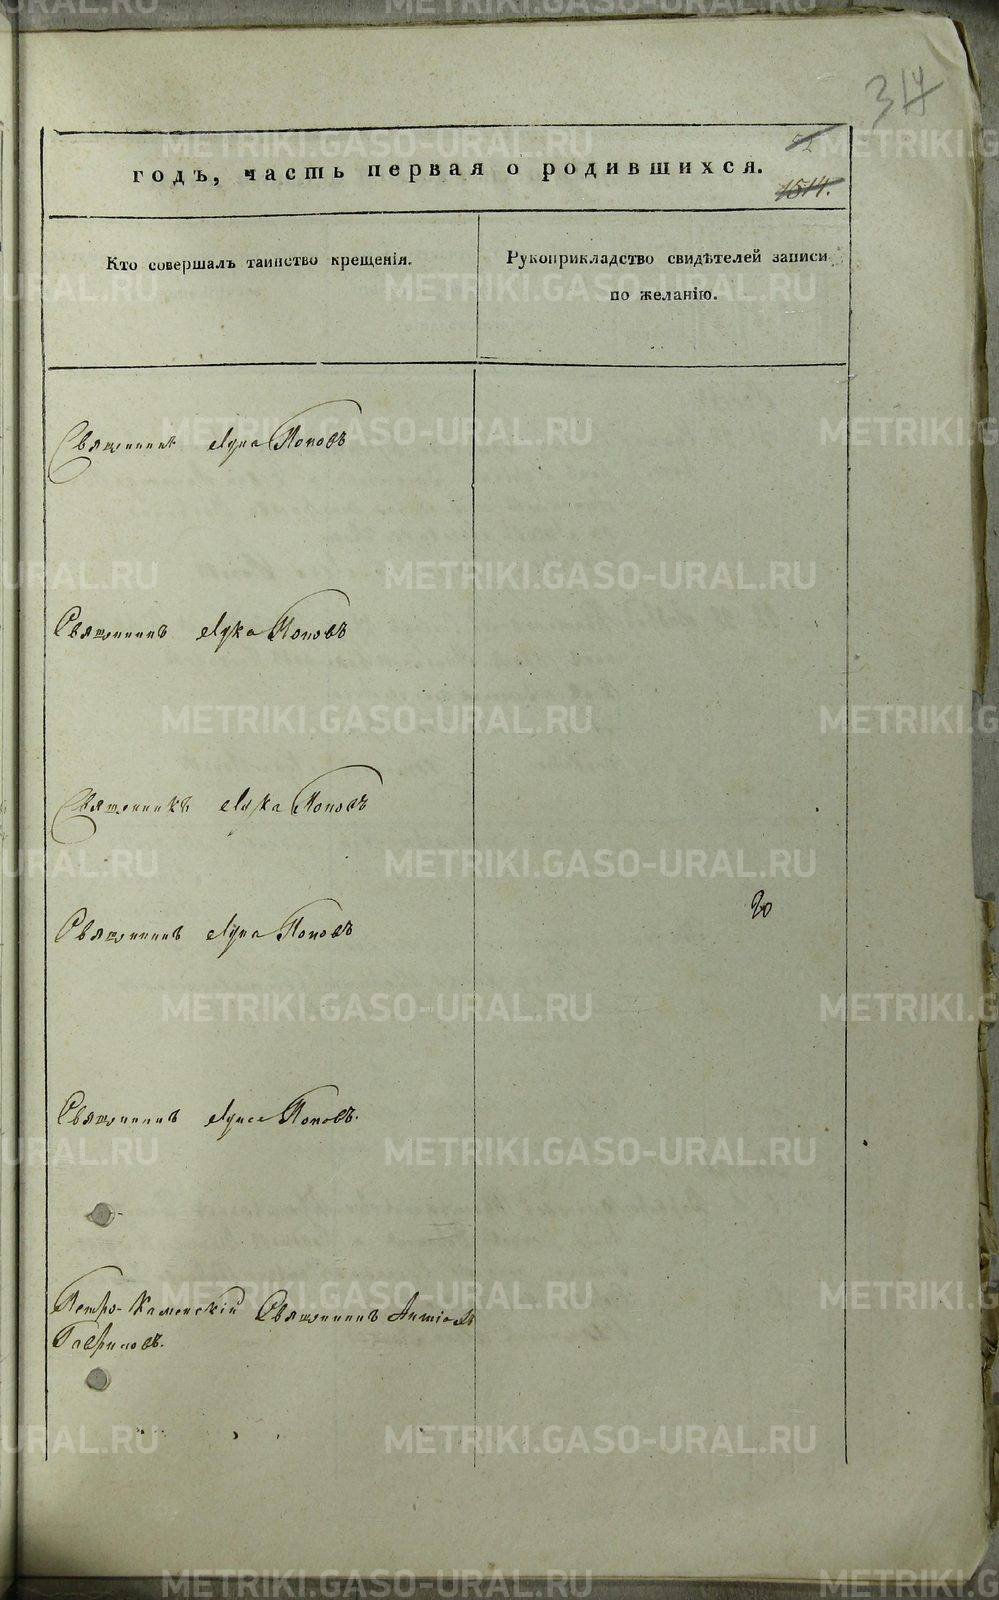 314
52
годъ, часть первая о родившихся.
1514.
Кто совершалъ таинство крещенія.
Рукоприкладство свидѣтелей записи
по желанію.
Священникъ Лука Поповъ
Священникъ Лука Поповъ
Священникъ Лука Поповъ
Священникъ Лука Поповъ
Священникъ Лука Поповъ.
Петро-Каменскій Священникъ
Гавриловъ.
METRIKI.GASO-URAL.RU